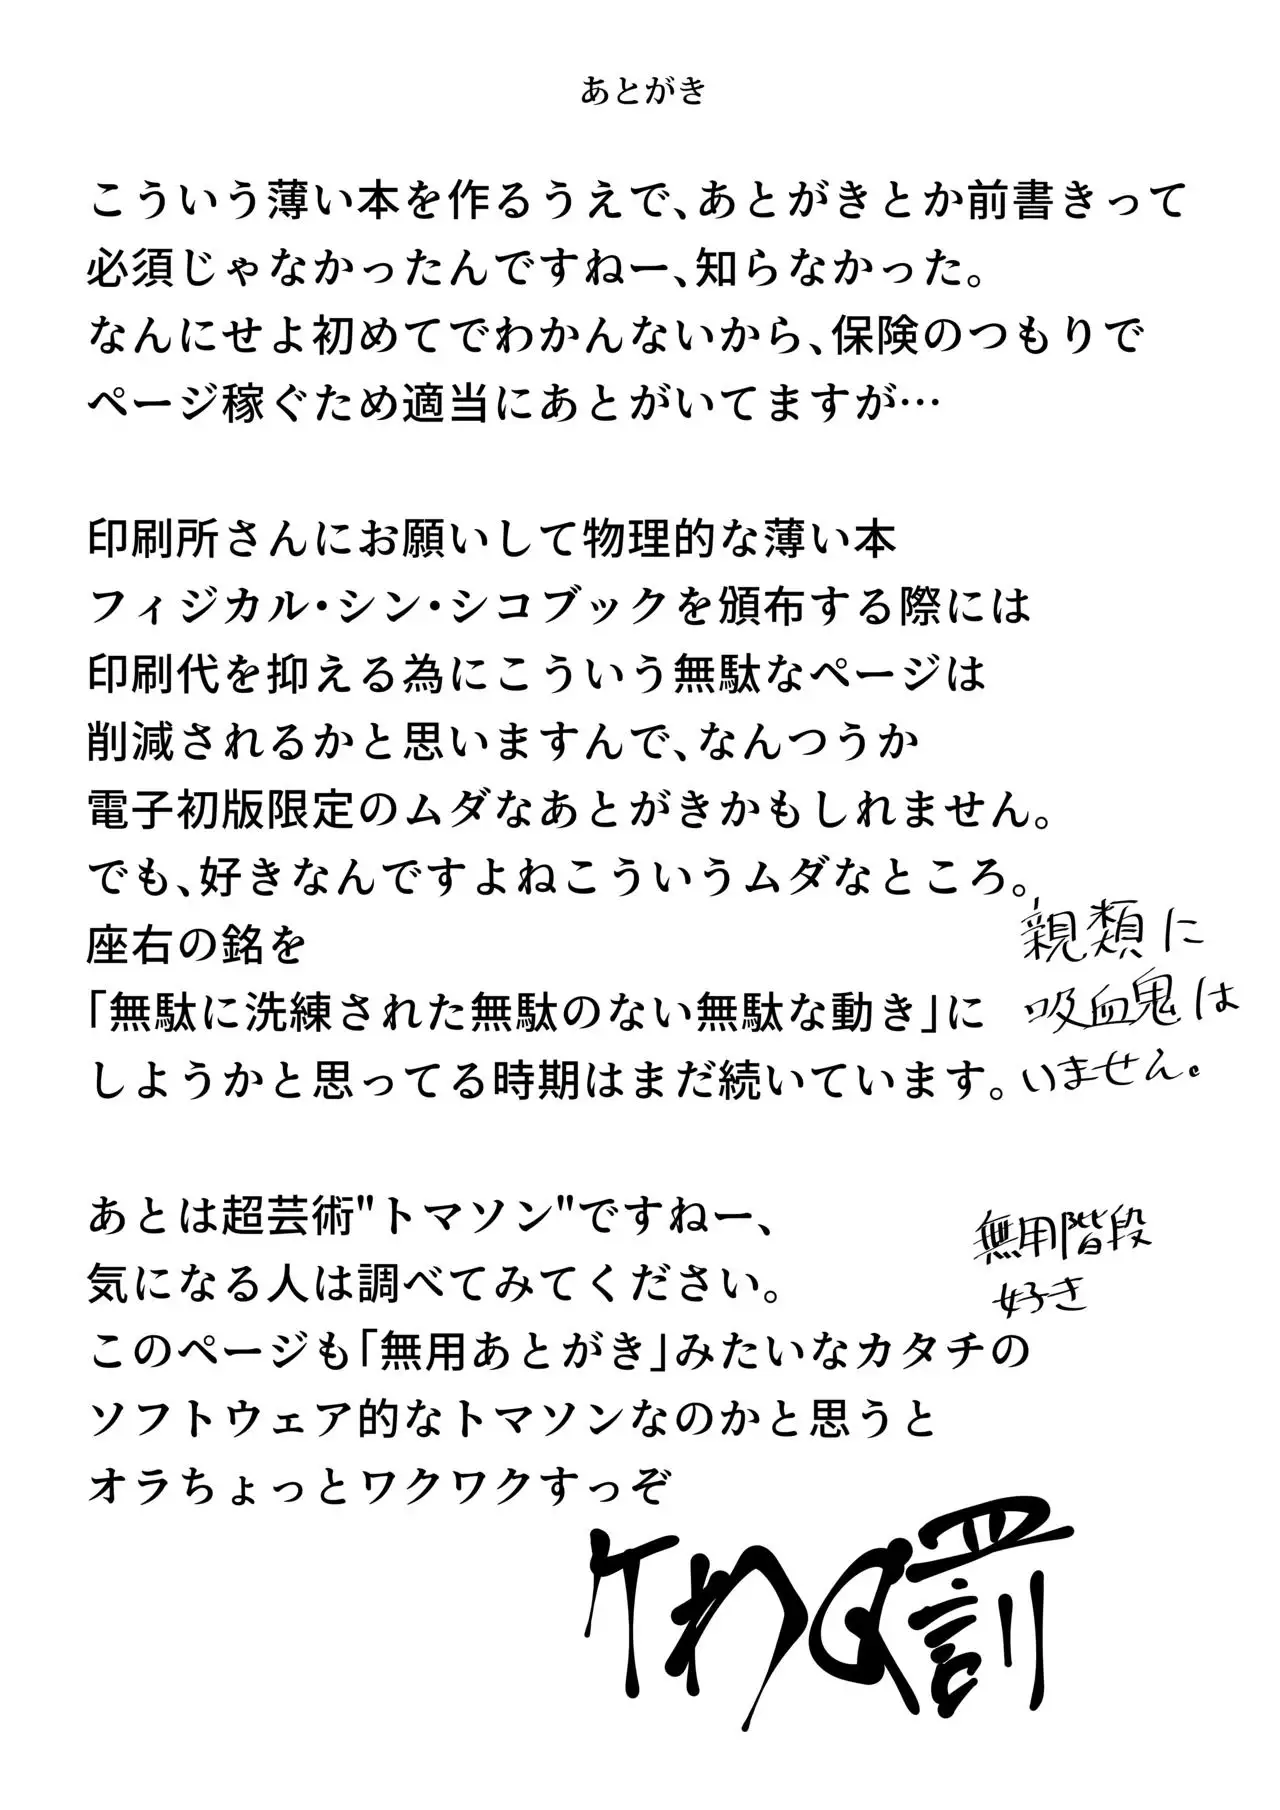 あとがき
こういう薄い本を作るうえで、あとがきとか前書きって
必須じゃなかったんですねー、知らなかった。
なんにせよ初めてでわかんないから、保険のつもりで
ページ稼ぐため適当にあとがいてますが…
印刷所さんにお願いして物理的な薄い本
フィジカル・シン・シコブックを頒布する際には
印刷代を抑える為にこういう無駄なページは
削減されるかと思いますんで、なんつうか
電子初版限定のムダなあとがきかもしれません。
でも、好きなんですよねこういうムダなところ。
座右の銘を
「無駄に洗練された無駄のない無駄な動き」に
しようかと思ってる時期はまだ続いています。
親類に
吸血鬼は
いません。
あとは超芸術"トマソン"ですねー、
気になる人は調べてみてください。
このページも「無用あとがき」みたいなカタチの
ソフトウェア的なトマソンなのかと思うと
オラちょっとワクワクすっぞ
無用階段
好き